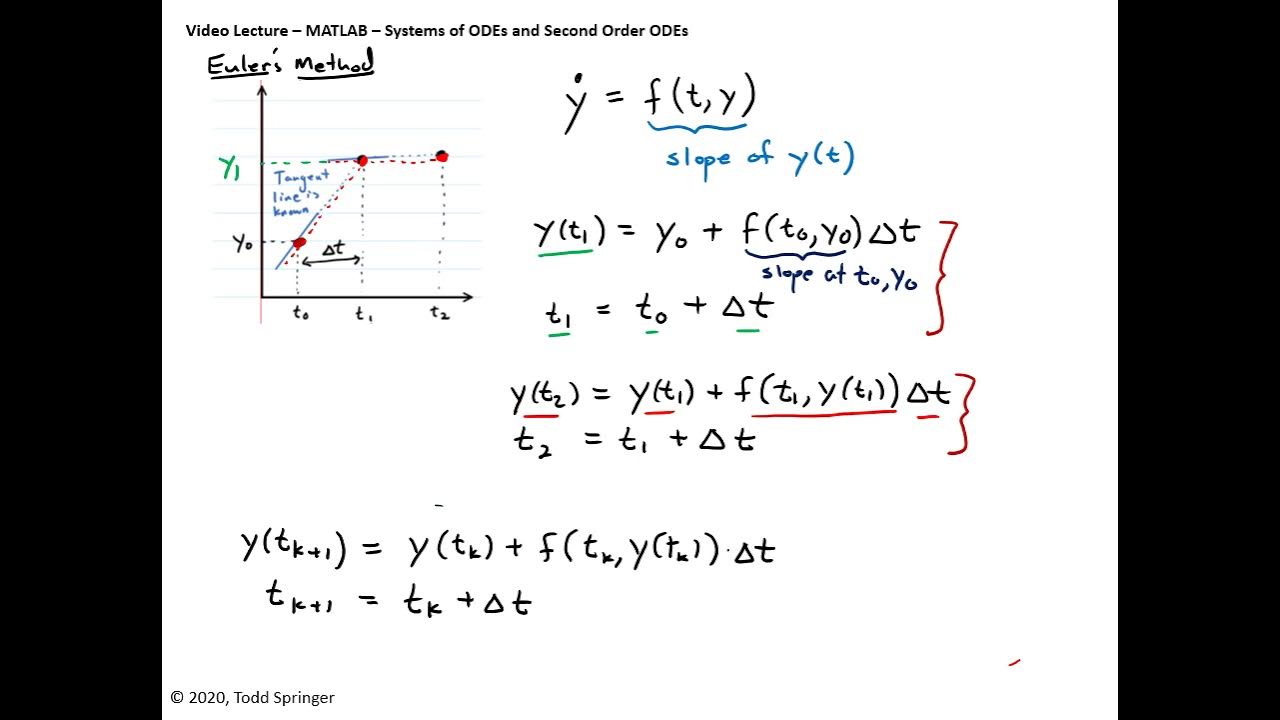 Video Lecture – MATLAB – Systems of ODEs and Second Order ODEs
Euler's Method
ẏ = f(t, y)
slope of y(t)
y₁
Tangent
line is
known
y₀
Δt
t₀ t₁ t₂
y(t₁) = y₀ + f(t₀, y₀) Δt
slope at t₀, y₀
t₁ = t₀ + Δt
y(t₂) = y(t₁) + f(t₁, y(t₁)) Δt
t₂ = t₁ + Δt
y(tₖ₊₁) = y(tₖ) + f(tₖ, y(tₖ)) · Δt
tₖ₊₁ = tₖ + Δt
© 2020, Todd Springer